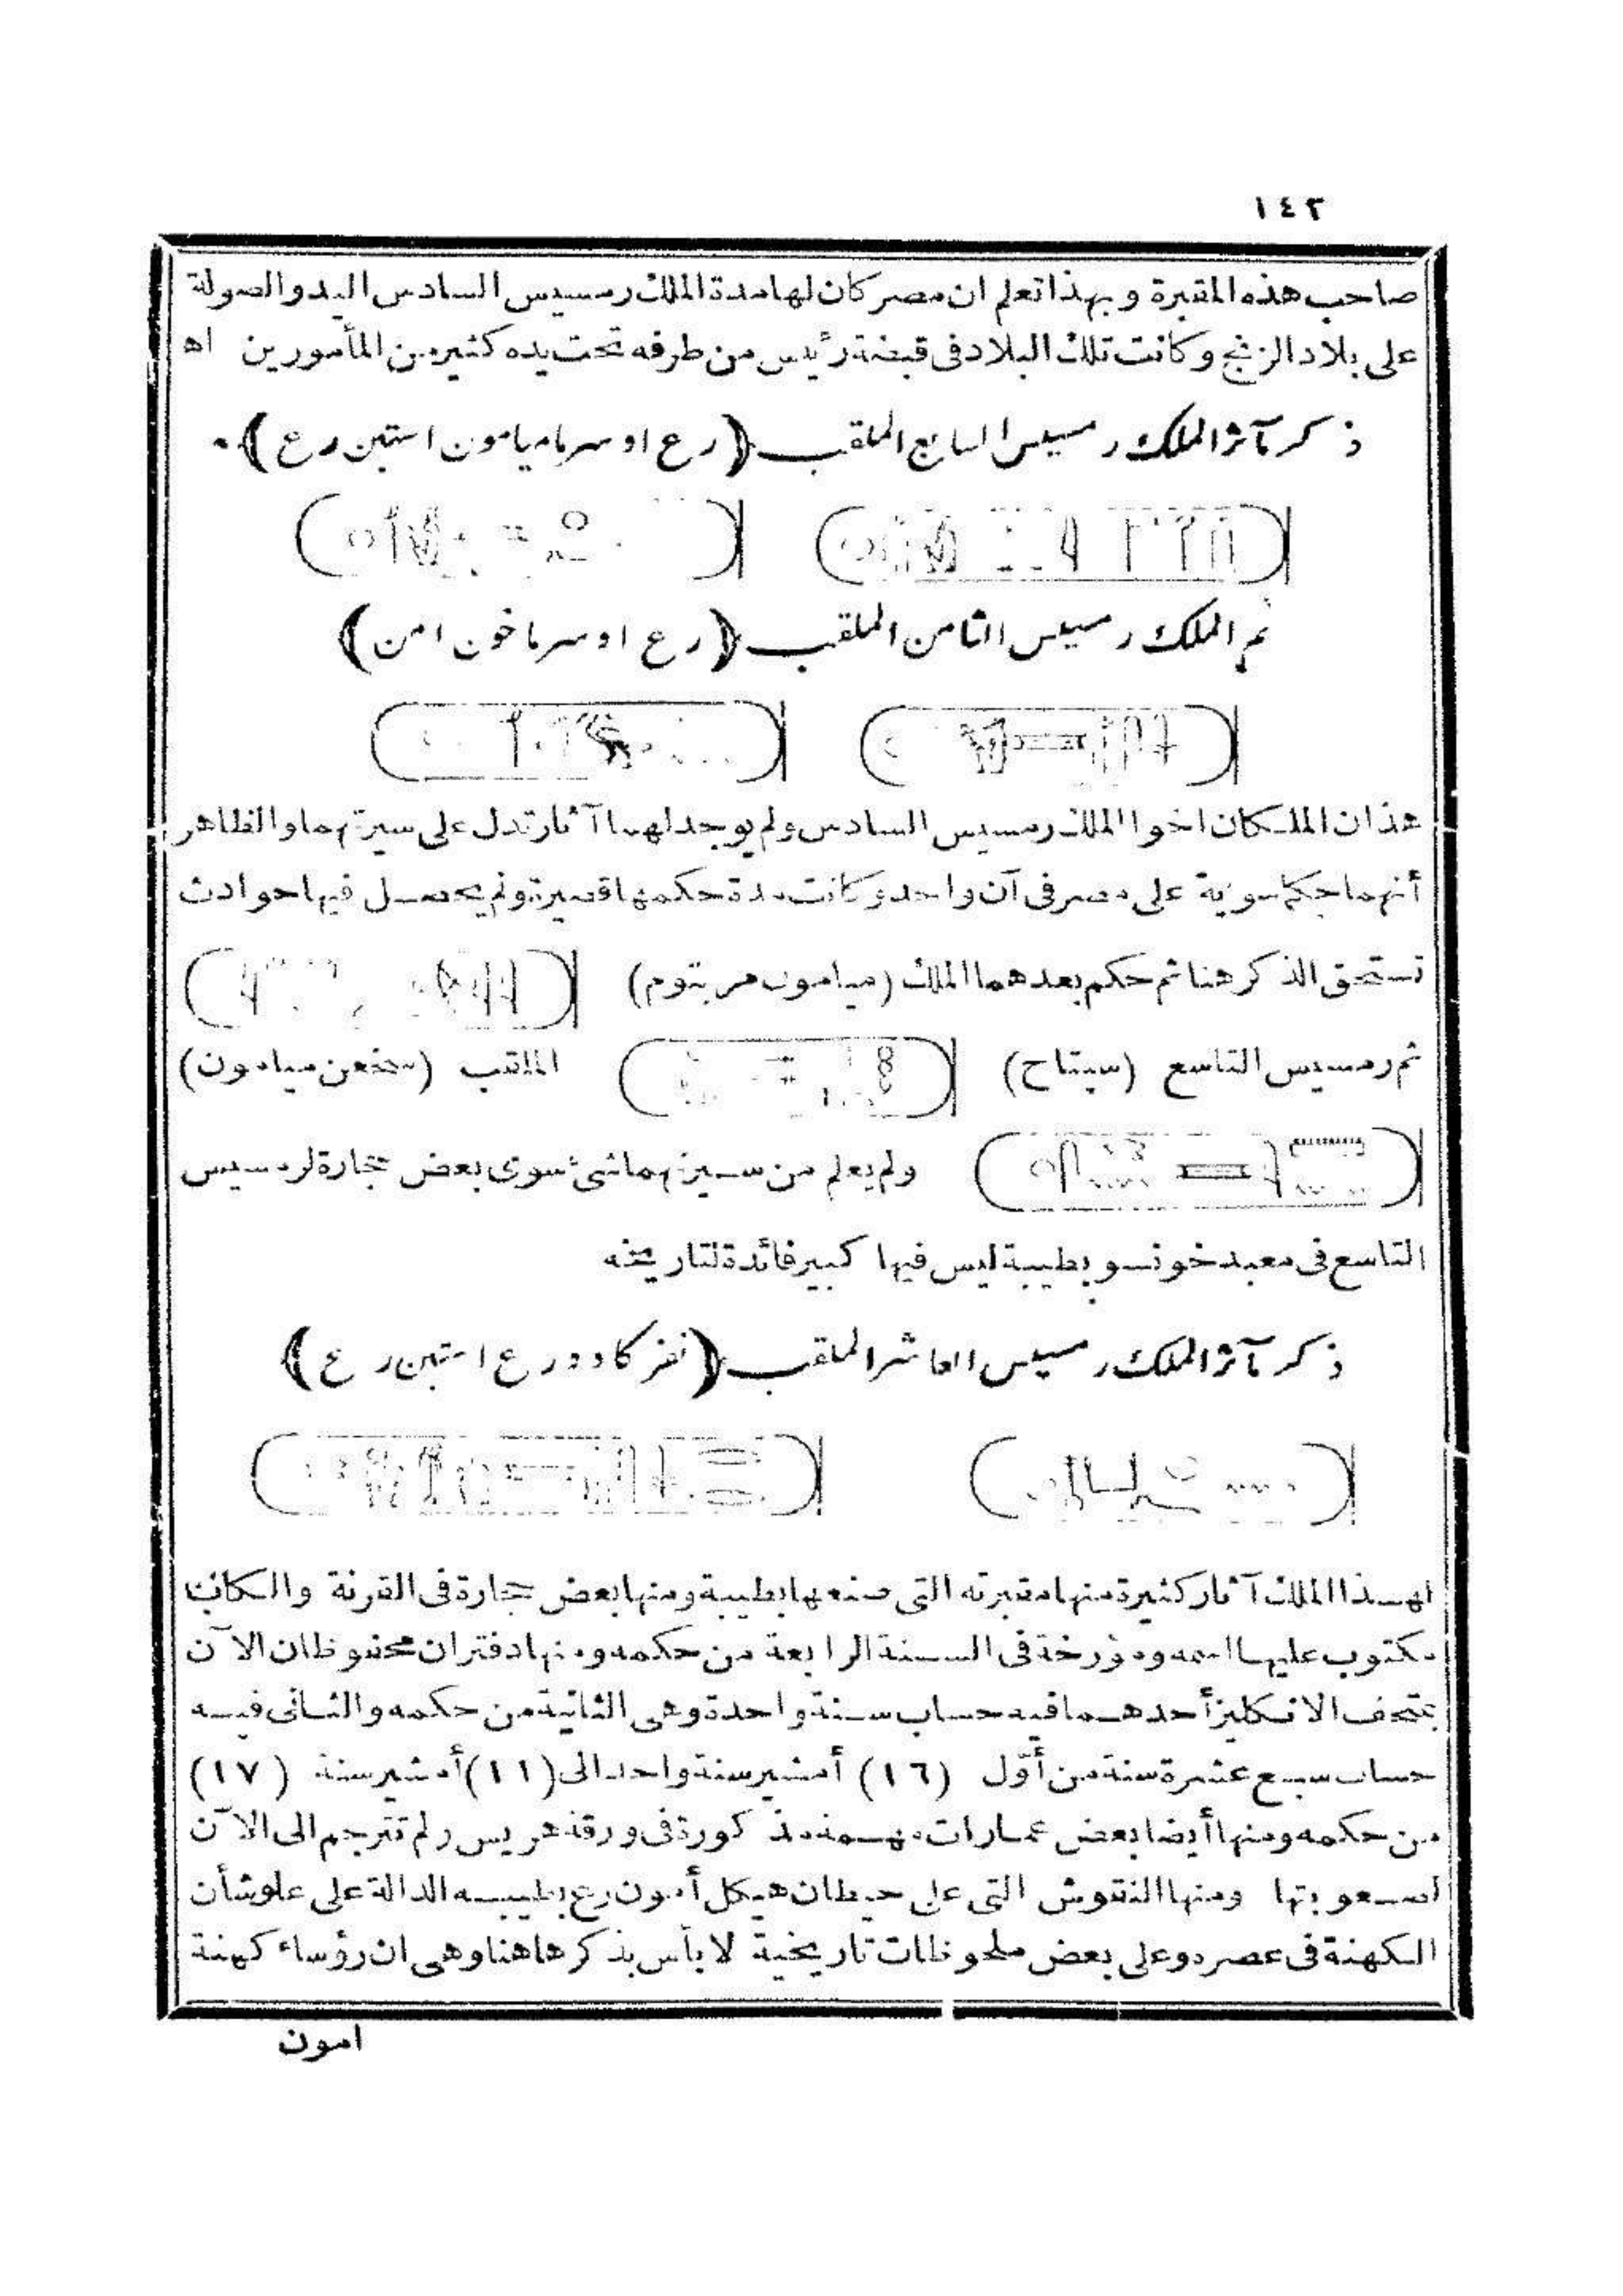 ١٤٢
صاحب هذه المقبرة وبهذا تعلم ان مصر كان لها مدة الملك رمسيس السادس اليد والصولة
على بلاد الزنج وكانت تلك البلاد فى قبضة رئيس من طرفه تحت يده كثير من المأمورين اه
ذكر مآثر الملك رمسيس السابع الملقب (رع اوسرما ميامون استبن رع)
ثم الملك رمسيس الثامن الملقب (رع اوسرما خون امن)
هذان الملكان اخوا الملك رمسيس السادس ولم يوجد لهما آثار تدل على سيرتهما والظاهر
أنهما حكما سوية على مصر فى آن واحد وكانت مدة حكمهما قصيرة ولم يحصل فيها حوادث
تستحق الذكر هنا ثم حكم بعدهما الملك (ميامون مريتوم)
ثم رمسيس التاسع (سبتاح) الملقب (سخعن ميامون)
ولم يعلم من سيرتهما شئ سوى بعض حجارة لرمسيس
التاسع فى معبد خونسو بطيبة ليس فيها كبير فائدة لتاريخه
ذكر مآثر الملك رمسيس العاشر الملقب (نفر كاوو رع استبن رع)
لهذا الملك آثار كثيرة منها مقبرته التى صنعها بطيبة ومنها بعض حجارة فى القرنة والكاب
مكتوب عليها اسمه ومؤرخة فى السنة الرابعة من حكمه ومنها دفتران محفوظان الآن
بمتحف الانكليز أحدهما فيه حساب سنة واحدة وهى الثانية من حكمه والثانى فيه
حساب سبع عشرة سنة من أوّل (١٦) أمشير سنة واحد الى (١١) أمشير سنة (١٧)
من حكمه ومنها أيضا بعض عمارات مهمة مذكورة فى ورقة هريس ولم تترجم الى الآن
لصعوبتها ومنها النقوش التى على حيطان هيكل أمون رع بطيبه الدالة على علو شأن
الكهنة فى عصره وعلى بعض ملحوظات تاريخية لا بأس بذكرها هنا وهى ان رؤساء كهنة
امون